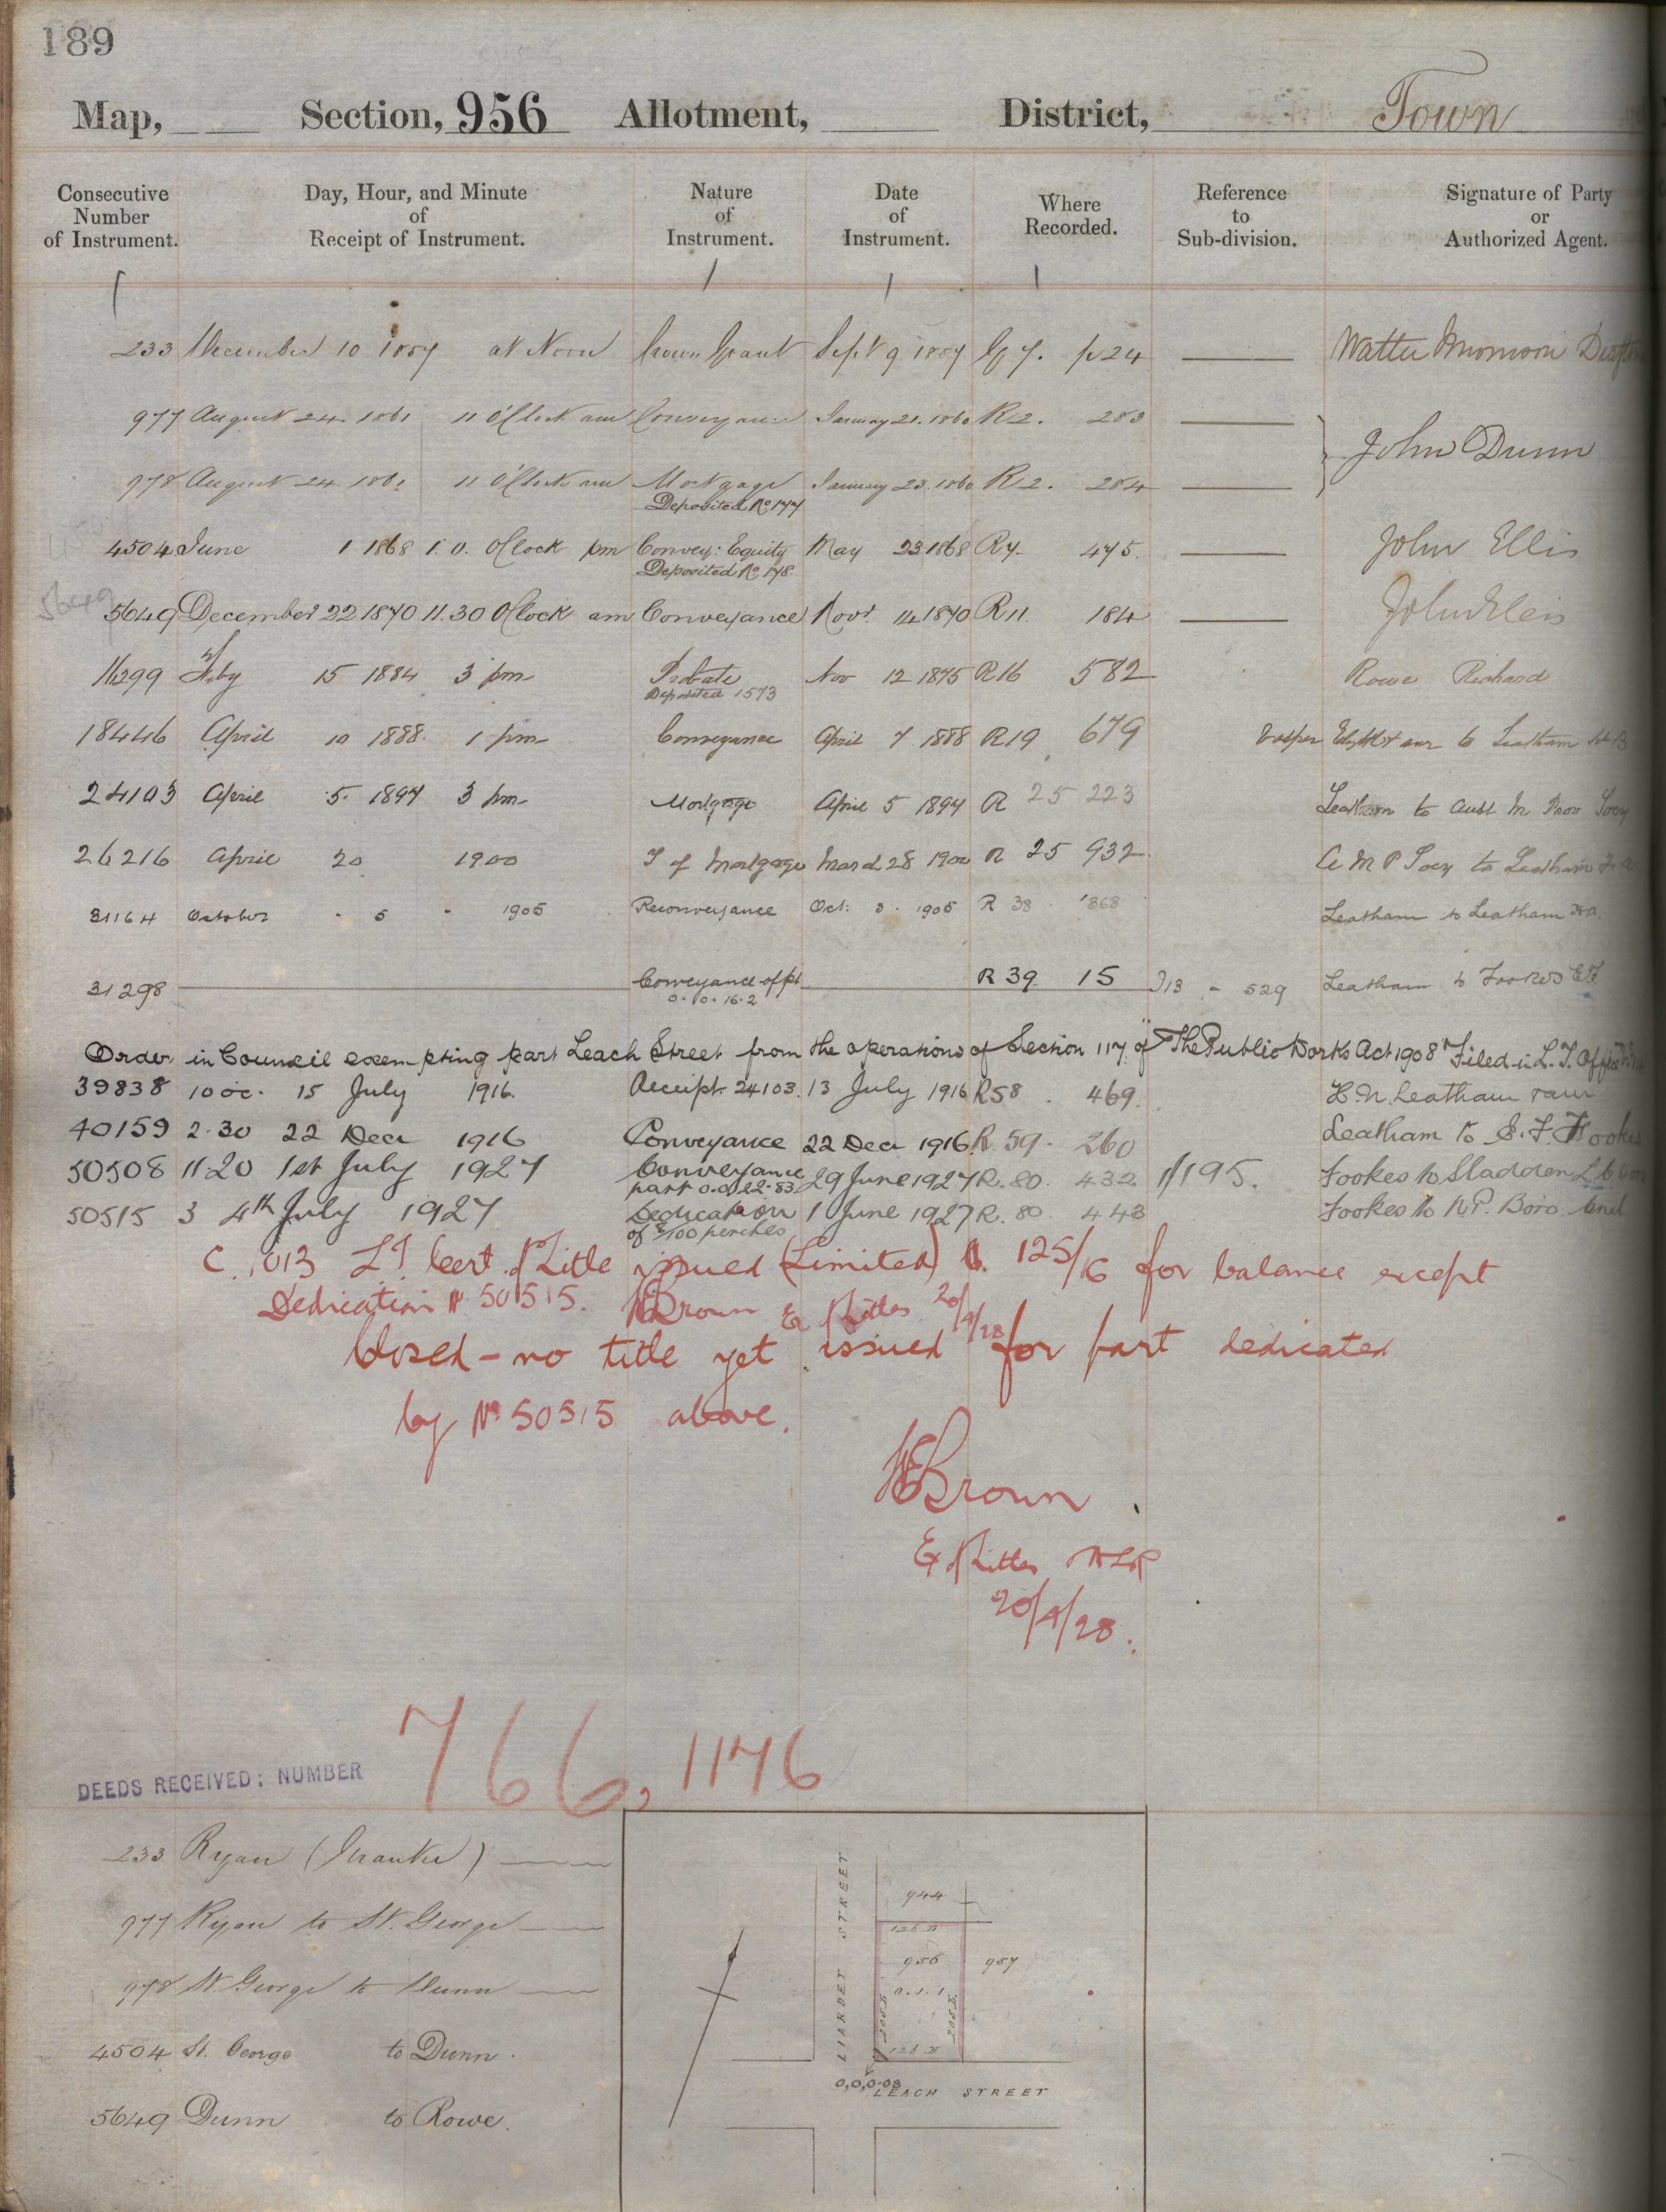 189
Map, Section, 956 Allotment, District, Town
Consecutive Number of Instrument.
Day, Hour, and Minute of Receipt of Instrument.
Nature of Instrument.
Date of Instrument.
Where Recorded.
Reference to Sub-division.
Signature of Party or Authorized Agent.
233 December 10 1857 at Noon Crown Grant Sept 9. 1857 G 7. p 24
977 August 24. 1861 11 O'Clock am Conveyance January 21. 1860 R 2. 283
John Dunn
978 August 24. 1861 11 O'Clock am Mortgage January 23. 1860 R 2. 284
Deposited No 177
4504 June 1 1868 1. 0. O'Clock pm Convey: Equity May 23 1868 R 7. 475. John Ellis
Deposited No 178
5649
5649 December 22 1870 11.30 O'Clock am Conveyance Novr 14 1870 R 11. 184 John Ellis
11299 Feby 15 1884 3 pm Probate Nov 12 1875 R 16 582 Rowe Richard
Deposited 1573
18446 April 10 1888. 1 pm Conveyance April 7 1888 R 19 679 to Leatham
24103 April 5. 1897 3 pm Mortgage April 5 1897 R 25 223 Leatham to Aust M Prov Socy
26216 April 20 1900 T of Mortgage March 28 1900 R 25 932 A M P Socy to Leatham
31164 October 5 1905 Reconveyance Oct: 3. 1905 R 38 868 Leatham to Leatham
31298 Conveyance of pt R 39 15 I 13 - 529 Leatham to Fookes E F
0. 0. 16. 2
Order in Council exempting part Leach Street from the operations of Section 117 of "The Public Works Act 1908" Filed in L. T. Office
39838 10 oc. 15 July 1916. Receipt 24103. 13 July 1916 R58. 469. H. N. Leatham
40159 2.30 22 Decr 1916 Conveyance 22 Decr 1916 R. 59. 260 Leatham to E. F. Fookes
50508 11.20 1st July 1927 Conveyance 29 June 1927 R. 80. 432 I/195. Fookes to Sladden
part 0.0.12.83
50515 3 4th July 1927 Dedication 1 June 1927 R. 80. 448 Fookes to N. P. Boro
of 8/100 perches
C. 1013 L T Cert. of Title issued (Limited) 125/16 for balance except
Dedication No 50515. Brown Ex of Titles 20/4/28
Closed - no title yet issued for part dedicated
by No 50515 above.
Brown
Ex of Titles
20/4/28.
DEEDS RECEIVED: NUMBER 766, 1176
233 Ryan (Grantee)
977 Ryan to St. George
978 St George to Dunn
4504 St. George to Dunn.
5649 Dunn to Rowe.
LIARDET STREET
944
126
956
957
0.1.1
205
205
126
0,0,0.08
LEACH STREET